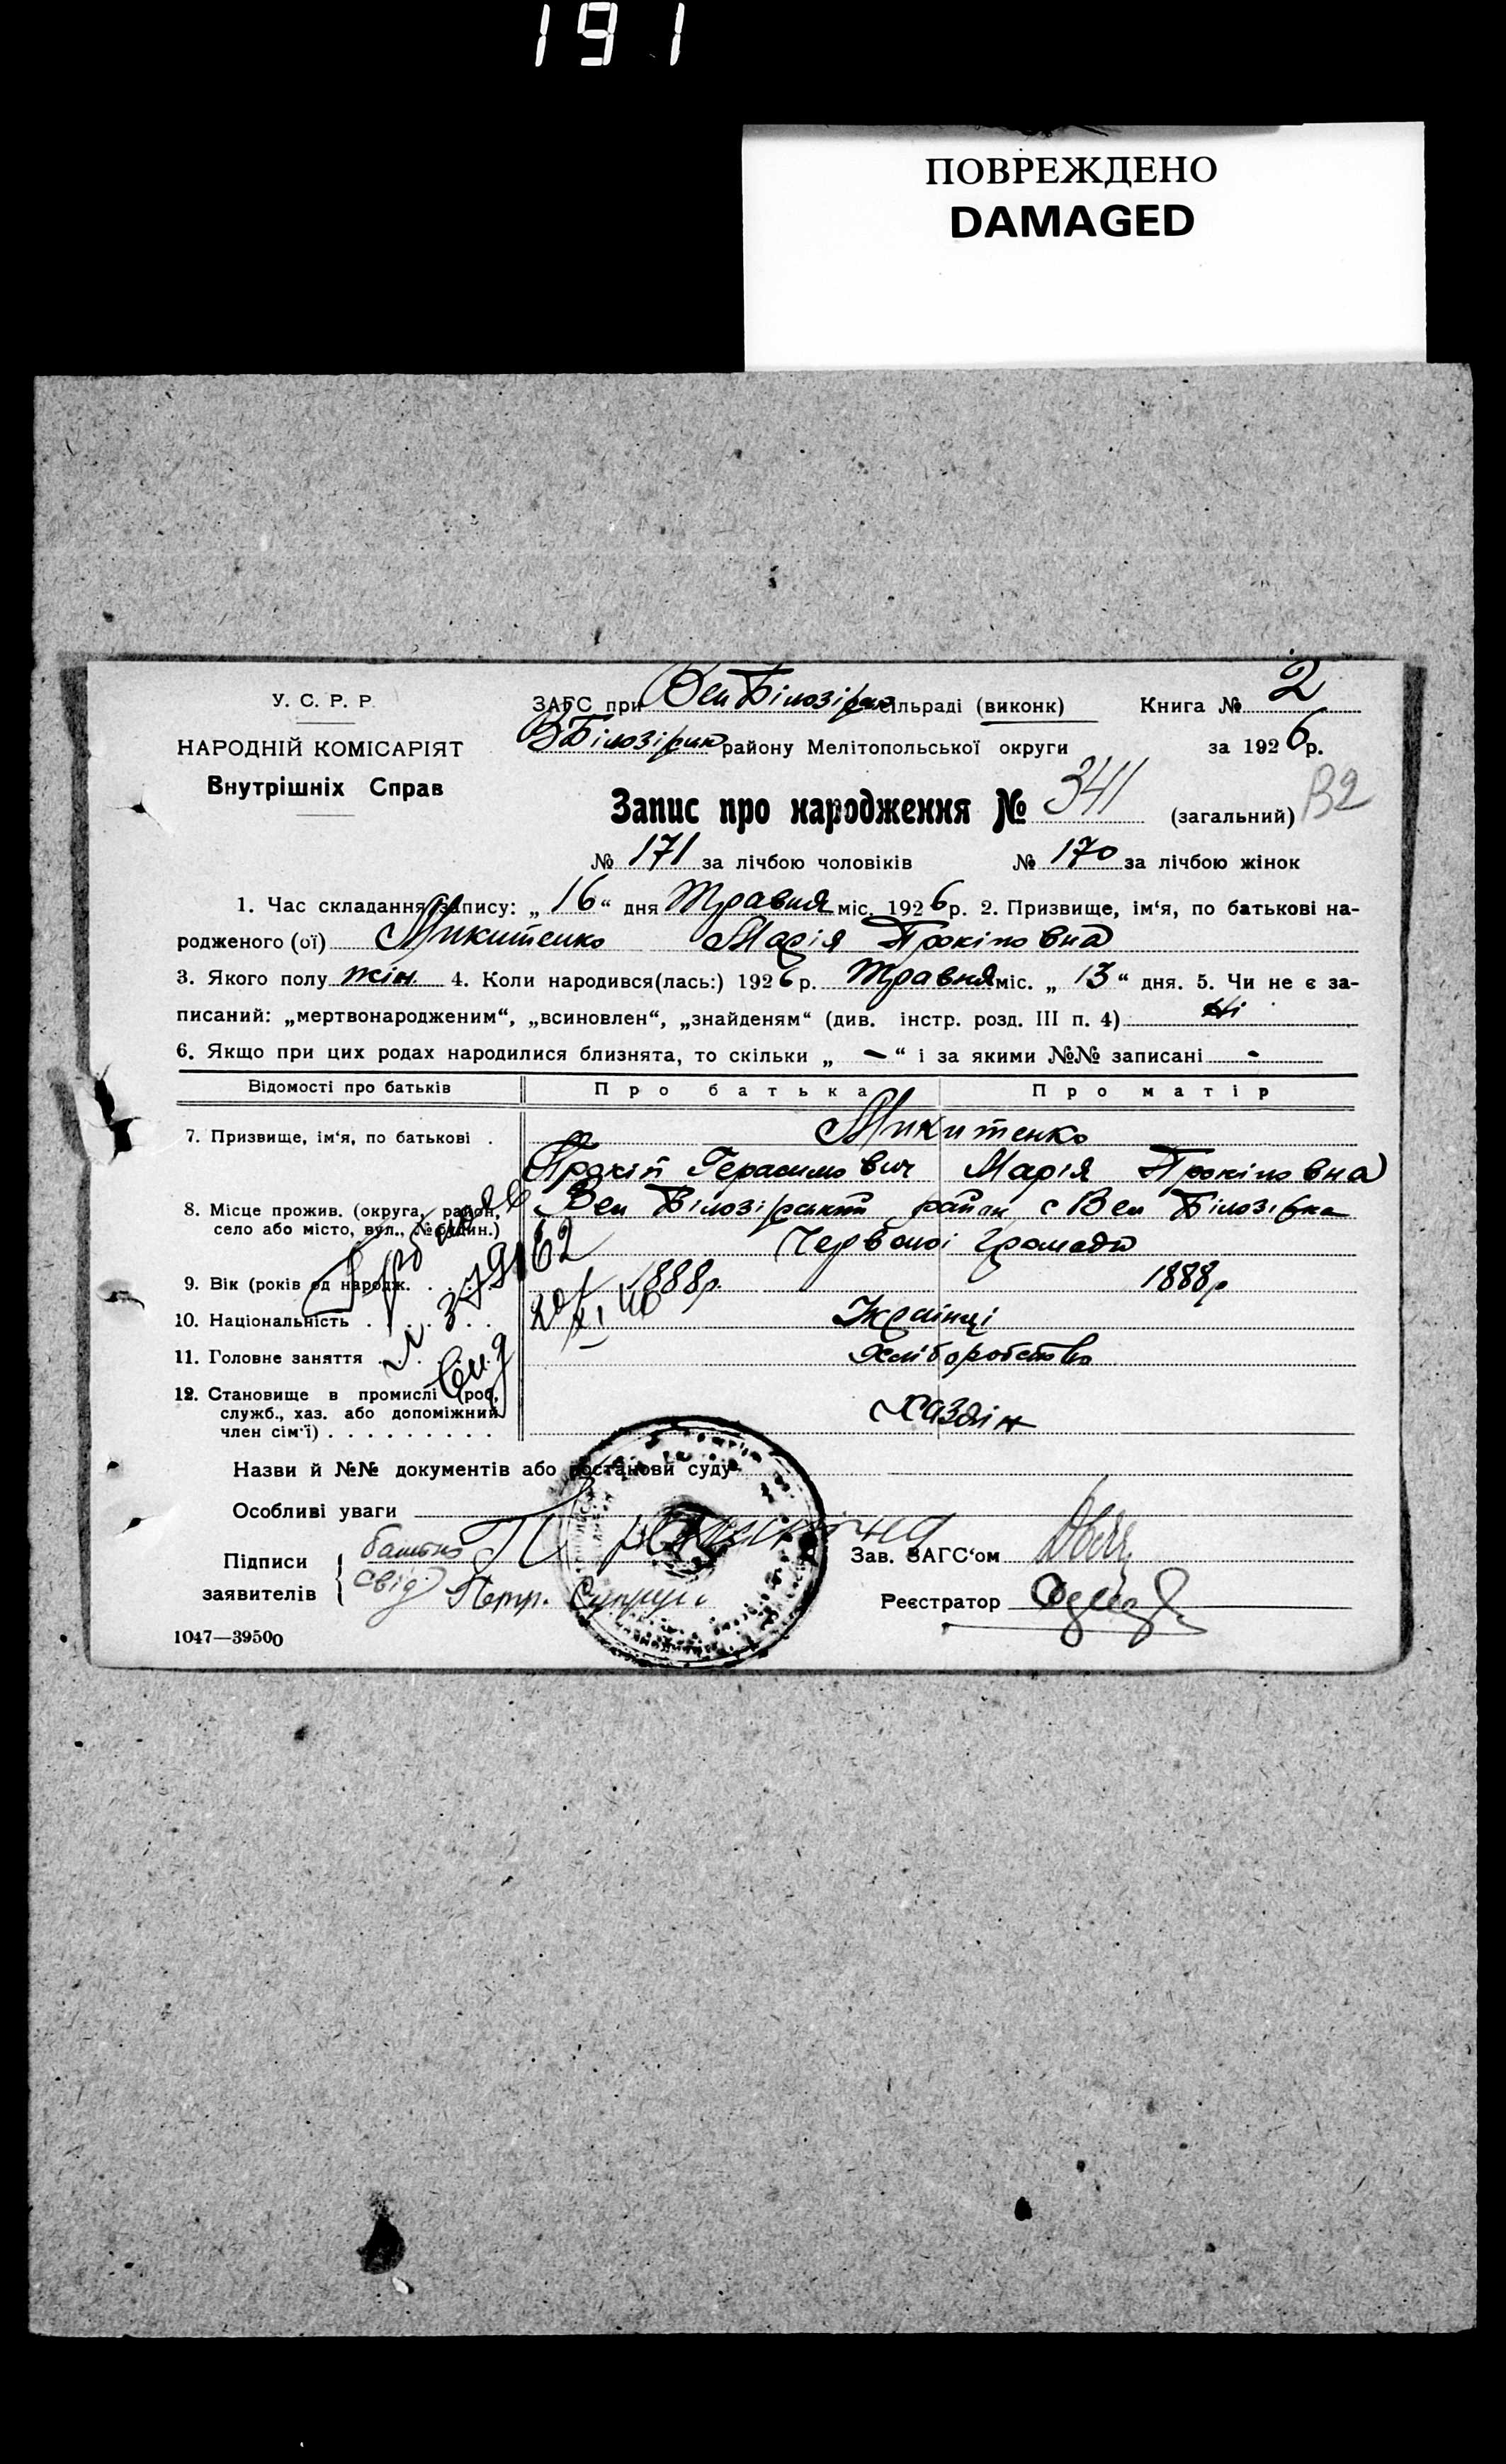 191
ПОВРЕЖДЕНО
DAMAGED
У. С. Р. Р.
НАРОДНІЙ КОМІСАРІЯТ
Внутрішніх Справ
ЗАГС при Вел Білозірськ сільраді (виконк) Книга № 2
В Білозірськ району Мелітопольської округи за 1926 р.
Запис про народження № 341 (загальний) В2
№ 171 за лічбою чоловіків № 170 за лічбою жінок
1. Час складання запису: „16“ дня Травня міс. 1926 р. 2. Призвище, ім‘я, по батькові на-
родженого (ої) Микитенко Марія Прокіповна
3. Якого полу жін. 4. Коли народився(лась:) 1926 р. Травня міс. „13“ дня. 5. Чи не є за-
писаний: „мертвонародженим“, „всиновлен“, „знайденям“ (див. інстр. розд. III п. 4) Ні
6. Якщо при цих родах народилися близнята, то скільки „ - “ і за якими №№ записані -
Відомості про батьків Про батька Про матір
7. Призвище, ім‘я, по батькові . Микитенко
Прокіп Герасимович Марія Прокіповна
8. Місце прожив. (округа, район, Вел Білозірський район с Вел Білозірка
село або місто, вул., № будин.) Червоної Громади
9. Вік (років од народж. 1888р. 1888р
10. Національність Українці
11. Головне заняття Хліборобство
12. Становище в промислі (роб., хазяін
служб., хаз. або допоміжний
член сім‘ї)
379162
Назви й №№ документів або постанови суду -
Особливі уваги
Підписи
заявителів
батько
свід
Петр.
Зав. ЗАГС‘ом
Реєстратор
1047—39500